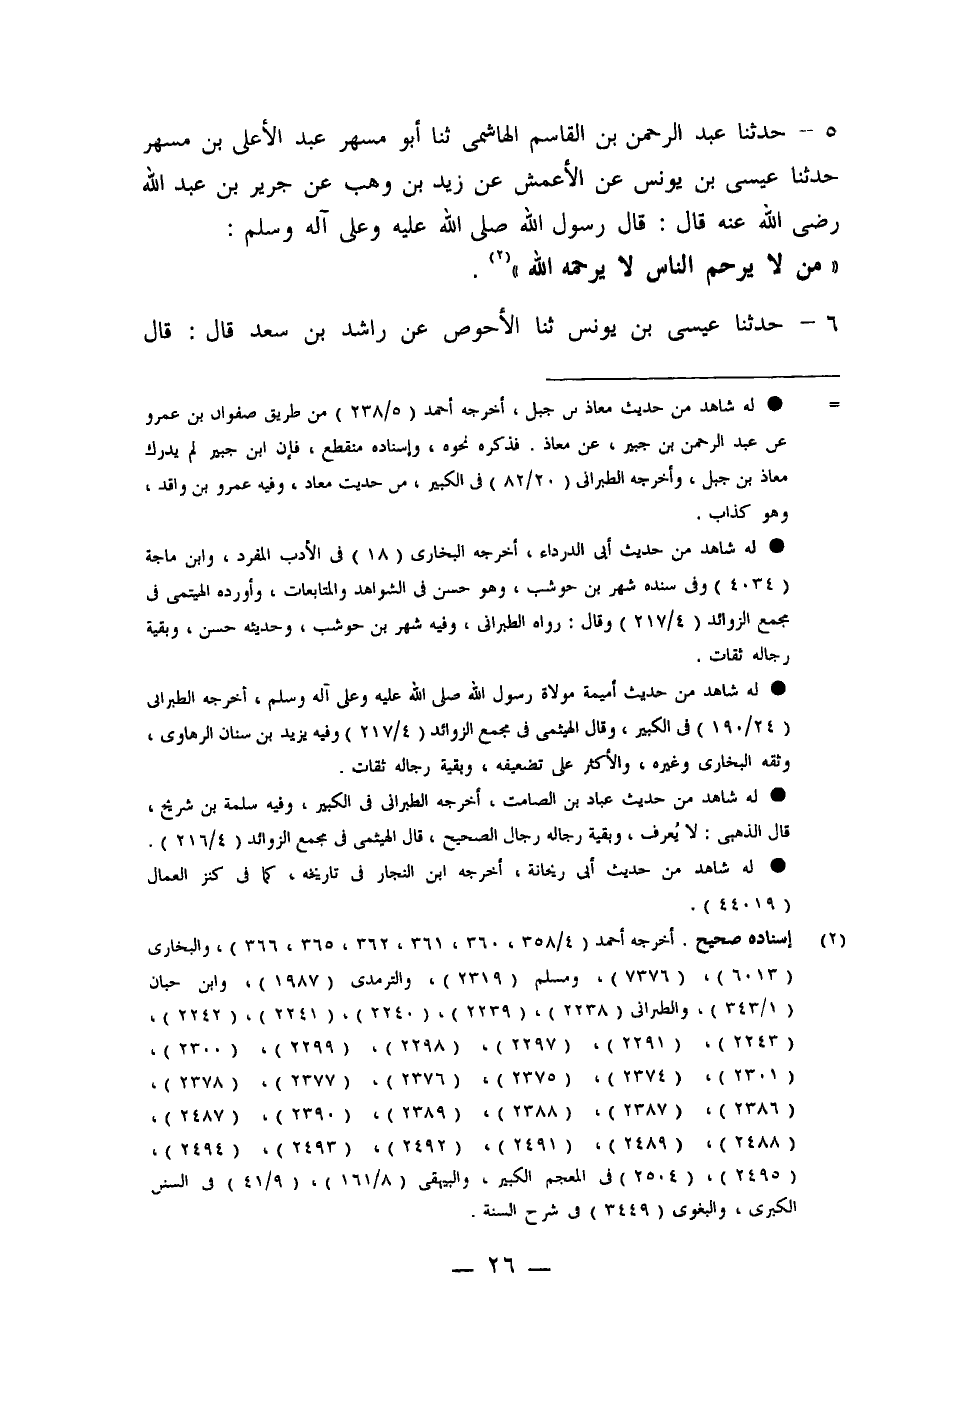 ٥ -- حدثنا عبد الرحمن بن القاسم الهاشمى ثنا أبو مسهر عبد الأعلى بن مسهر
حدثنا عيسى بن يونس عن الأعمش عن زيد بن وهب عن جرير بن عبد الله
رضى الله عنه قال : قال رسول الله صلى الله عليه وعلى آله وسلم :
« من لا يرحم الناس لا يرحمه الله »(٢) .
٦ – حدثنا عيسى بن يونس ثنا الأحوص عن راشد بن سعد قال : قال
= ● له شاهد من حديث معاذ بن جبل ، أخرجه أحمد ( ٢٣٨/٥ ) من طريق صفوان بن عمرو
عن عبد الرحمن بن جبير ، عن معاذ . فذكره نحوه ، وإسناده منقطع ، فإن ابن جبير لم يدرك
معاذ بن جبل ، وأخرجه الطبرانى ( ٨٢/٢٠ ) فى الكبير ، من حديث معاد ، وفيه عمرو بن واقد ،
وهو كذاب .
● له شاهد من حديث أبى الدرداء ، أخرجه البخارى ( ١٨ ) فى الأدب المفرد ، وابن ماجة
( ٤٠٣٤ ) وفى سنده شهر بن حوشب ، وهو حسن فى الشواهد والمتابعات ، وأورده الهيتمى فى
مجمع الزوائد ( ٢١٧/٤ ) وقال : رواه الطبرانى ، وفيه شهر بن حوشب ، وحديثه حسن ، وبقية
رجاله ثقات .
● له شاهد من حديث أميمة مولاة رسول الله صلى الله عليه وعلى آله وسلم ، أخرجه الطبرانى
( ١٩٠/٢٤ ) فى الكبير ، وقال الهيثمى فى مجمع الزوائد ( ٢١٧/٤ ) وفيه يزيد بن سنان الرهاوى ،
وثقه البخارى وغيره ، والأكثر على تضعيفه ، وبقية رجاله ثقات .
● له شاهد من حديث عباد بن الصامت ، أخرجه الطبرانى فى الكبير ، وفيه سلمة بن شريح ،
قال الذهبى : لا يُعرف ، وبقية رجاله رجال الصحيح ، قال الهيثمى فى مجمع الزوائد ( ٢١٦/٤ ) .
● له شاهد من حديث أبى ريحانة ، أخرجه ابن النجار فى تاريخه ، كما فى كنز العمال
( ٤٤٠١٩ ) .
(٢) إسناده صحيح . أخرجه أحمد ( ٣٥٨/٤ ، ٣٦٠ ، ٣٦١ ، ٣٦٢ ، ٣٦٥ ، ٣٦٦ ) ، والبخارى
( ٦٠١٣ ) ، ( ٧٣٧٦ ) ، ومسلم ( ٢٣١٩ ) ، والترمدى ( ١٩٨٧ ) ، وابن حبان
( ٣٤٣/١ ) ، والطبرانى ( ٢٢٣٨ ) ، ( ٢٢٣٩ ) ، ( ٢٢٤٠ ) ، ( ٢٢٤١ ) ، ( ٢٢٤٢ ) ،
( ٢٢٤٣ ) ، ( ٢٢٩١ ) ، ( ٢٢٩٧ ) ، ( ٢٢٩٨ ) ، ( ٢٢٩٩ ) ، ( ٢٣٠٠ ) ،
( ٢٣٠١ ) ، ( ٢٣٧٤ ) ، ( ٢٣٧٥ ) ، ( ٢٣٧٦ ) ، ( ٢٣٧٧ ) ، ( ٢٣٧٨ ) ،
( ٢٣٨٦ ) ، ( ٢٣٨٧ ) ، ( ٢٣٨٨ ) ، ( ٢٣٨٩ ) ، ( ٢٣٩٠ ) ، ( ٢٤٨٧ ) ،
( ٢٤٨٨ ) ، ( ٢٤٨٩ ) ، ( ٢٤٩١ ) ، ( ٢٤٩٢ ) ، ( ٢٤٩٣ ) ، ( ٢٤٩٤ ) ،
( ٢٤٩٥ ) ، ( ٢٥٠٤ ) فى المعجم الكبير ، والبيهقى ( ١٦١/٨ ) ، ( ٤١/٩ ) فى السنن
الكبرى ، والبغوى ( ٣٤٤٩ ) فى شرح السنة .
— ٢٦ —